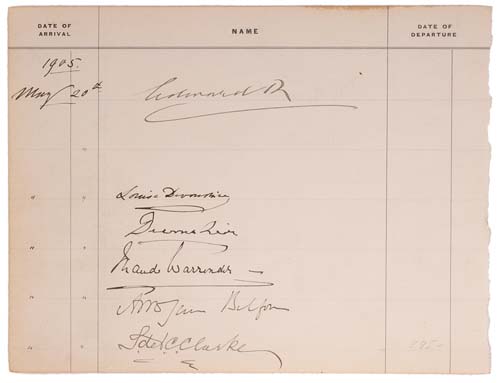 DATE OF ARRIVAL NAME DATE OF DEPARTURE
1905.
May 20th Edward R
" "
" Louise Devonshire
" Devonshire
" Maud Warrender
" Balfour
" Clarke